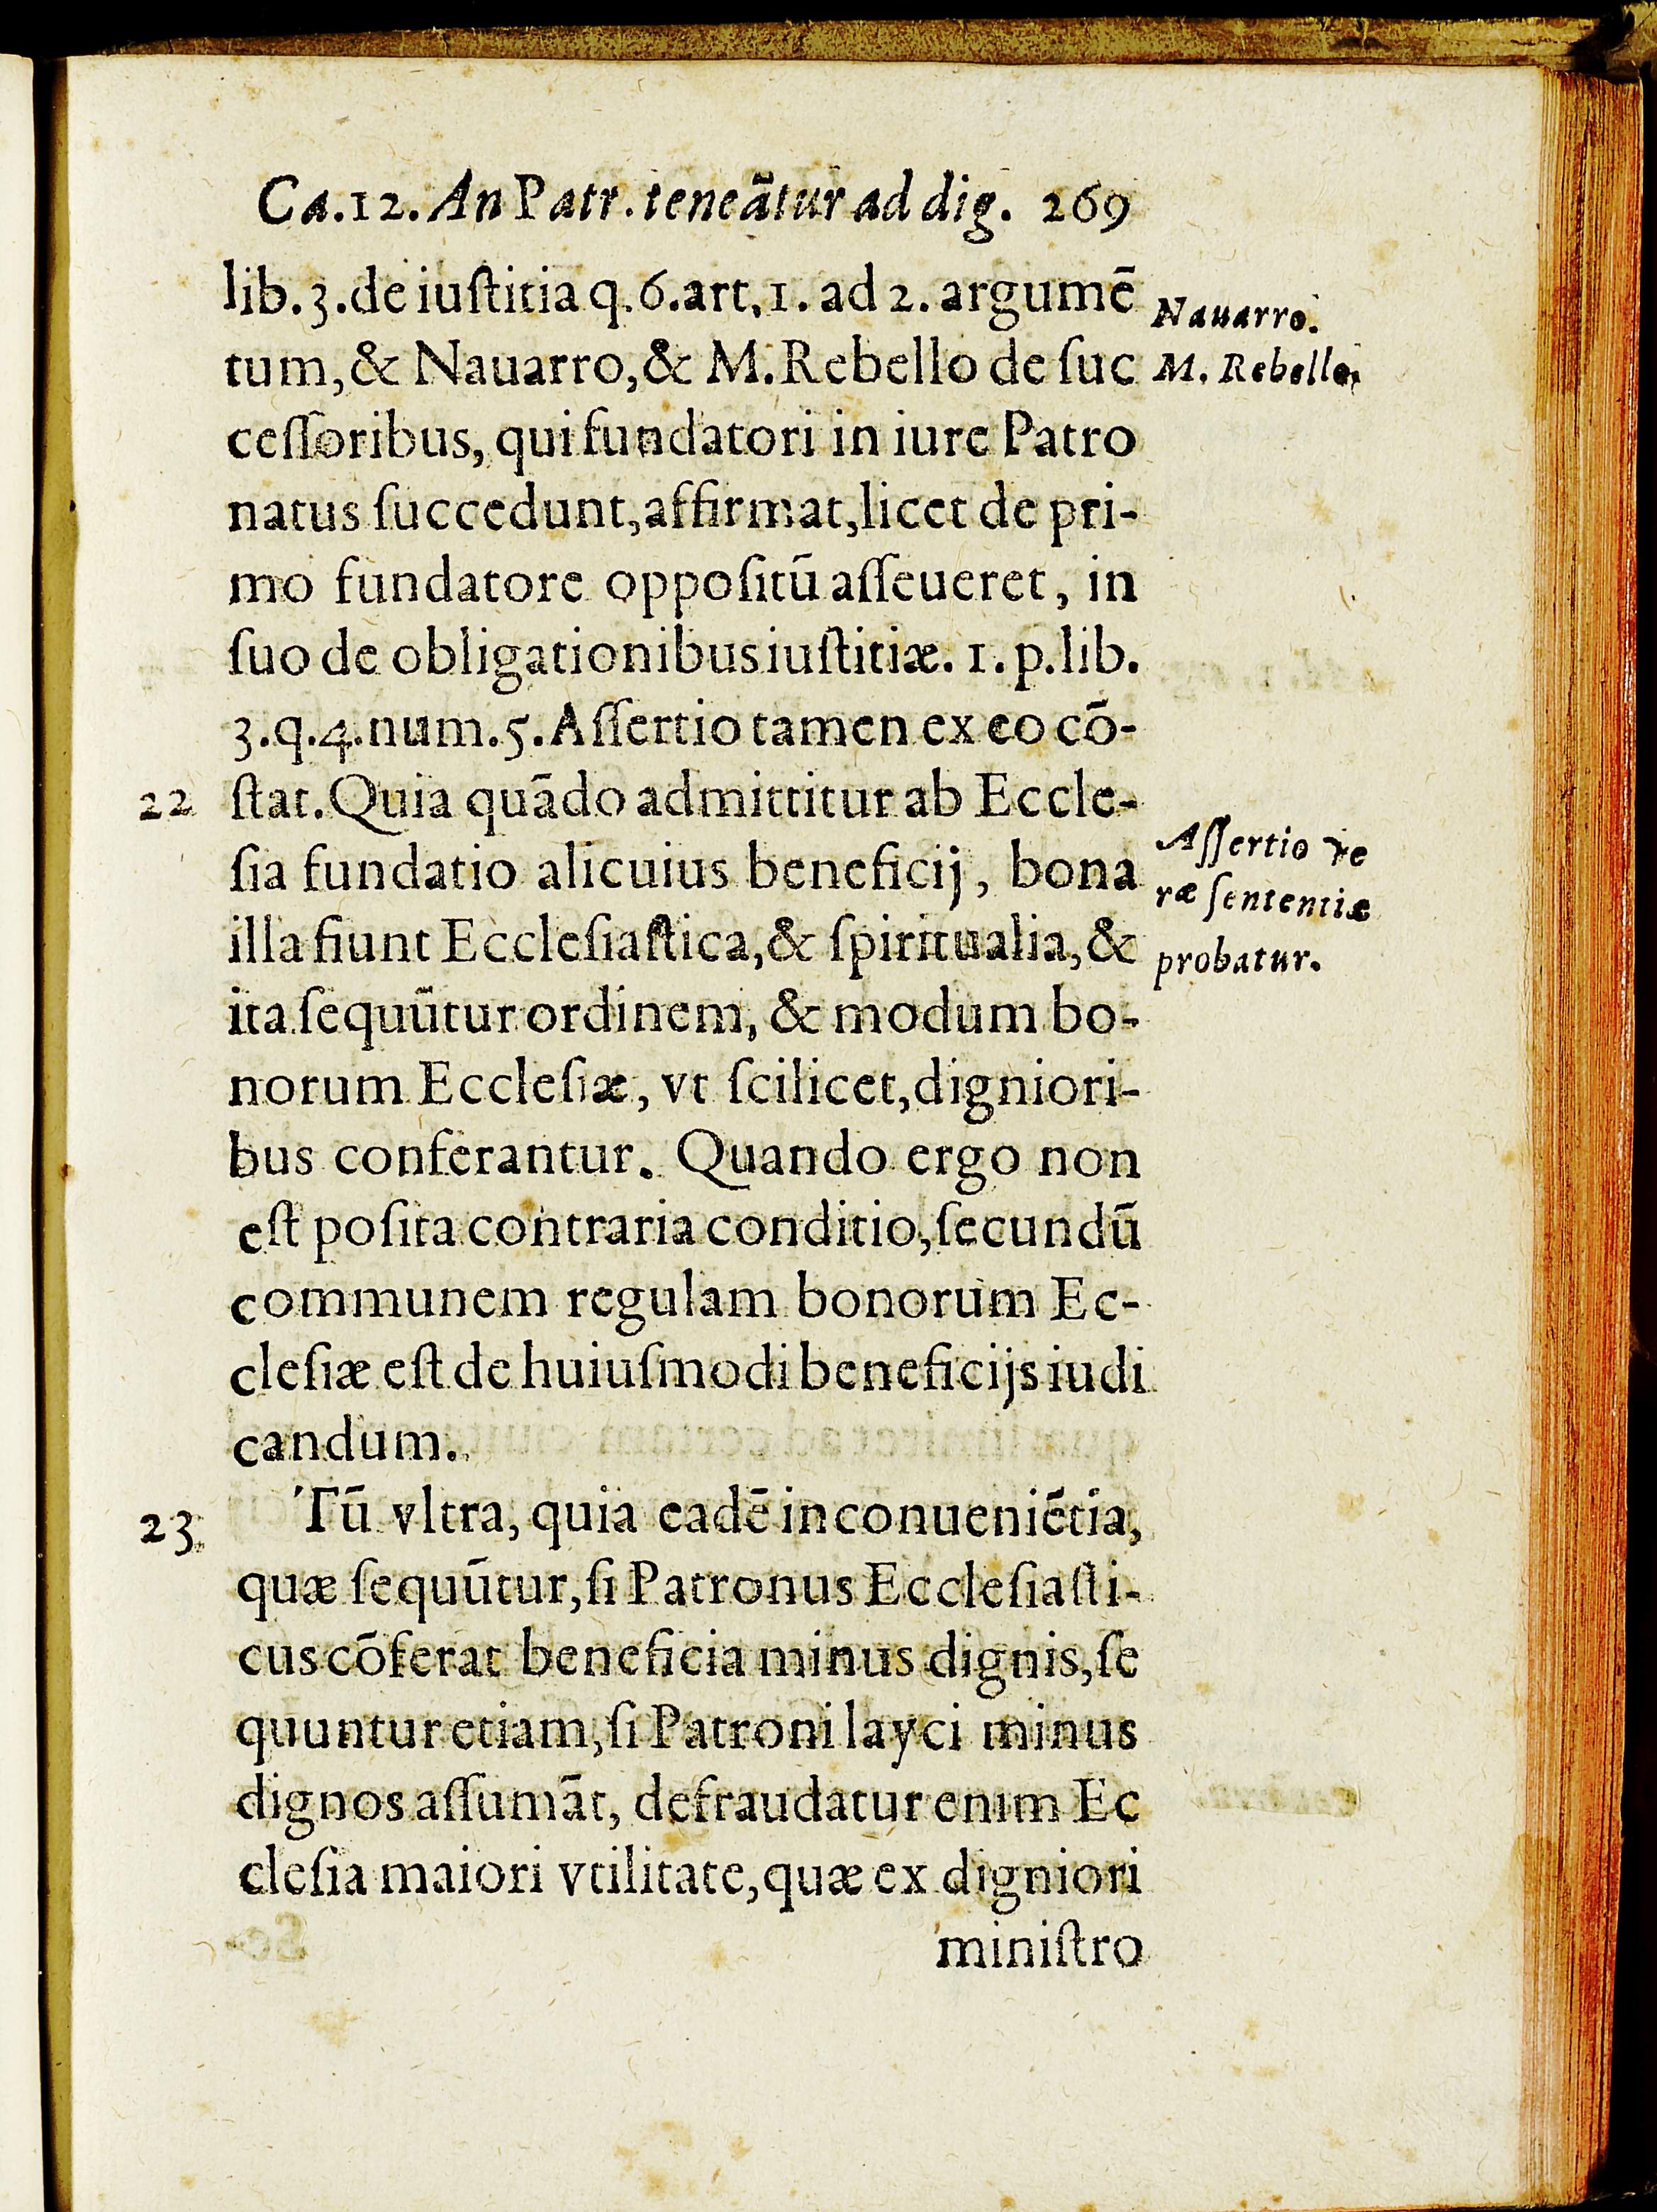 Ca.12. An Patr. teneātur ad dig. 269
lib. 3. de iuſtitia q. 6. art, 1. ad 2. argumē
tum, & Nauarro, & M. Rebello de ſuc
ceſſoribus, qui fundatori in iure Patro
natus ſuccedunt, affirmat, licet de pri-
mo fundatore oppoſitū aſſeueret, in
ſuo de obligationibus iuſtitiæ. 1. p. lib.
3. q. 4. num. 5. Aſſertio tamen ex eo cō-
22 ſtat. Quia quādo admittitur ab Eccle-
ſia fundatio alicuius beneficij, bona
illa fiunt Eccleſiaſtica, & ſpiritualia, &
ita ſequūtur ordinem, & modum bo-
norum Eccleſiæ, vt ſcilicet, digniori-
bus conferantur. Quando ergo non
eſt poſita contraria conditio, ſecundū
communem regulam bonorum Ec-
cleſiæ eſt de huiuſmodi beneficijs iudi
candum.
23 Tū vltra, quia eadē inconueniētia,
quæ ſequūtur, ſi Patronus Eccleſiaſti-
cus cōferat beneficia minus dignis, ſe
quuntur etiam, ſi Patroni layci minus
dignos aſſumāt, defraudatur enim Ec
cleſia maiori vtilitate, quæ ex digniori
miniſtro
Nauarro.
M. Rebello.
Aſſertio ve
ræ ſententiæ
probatur.